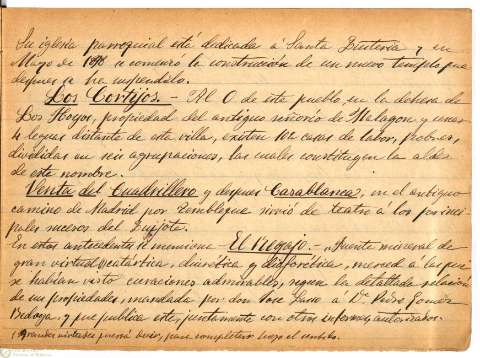 Su iglesia parroquial está dedicada á Santa Quiteria y en
Mayo de 1898 se comenzó la construcción de un nuevo templo que
despues se ha suspendido.
Los Cortijos.- Al O de este pueblo, en la dehesa de
Los Hoyos, propiedad del antiguo señorío de Malagon y unas
4 leguas distante de esta villa, existen 112 casas de labor, pobres,
divididas en seis agrupaciones, las cuales constituyen la aldea
de este nombre.
Venta del Cuadrillero y despues Casablanca, en el antiguo
camino de Madrid por Tembleque sirvió de teatro á los princi
pales sucesos del Quijote.
En estos antecedentes se menciona - El Pigajo.- Fuente mineral de
gran virtud, diurética y diaforética, merced á las que
se habian visto curaciones admirables, segun la detallada relación
de sus propiedades, mandada por don Jose Laso á Dn Pedro Gomez
Bedoya, y que publica este, juntamente con otros informes autorizados.
Grandes virtudes para